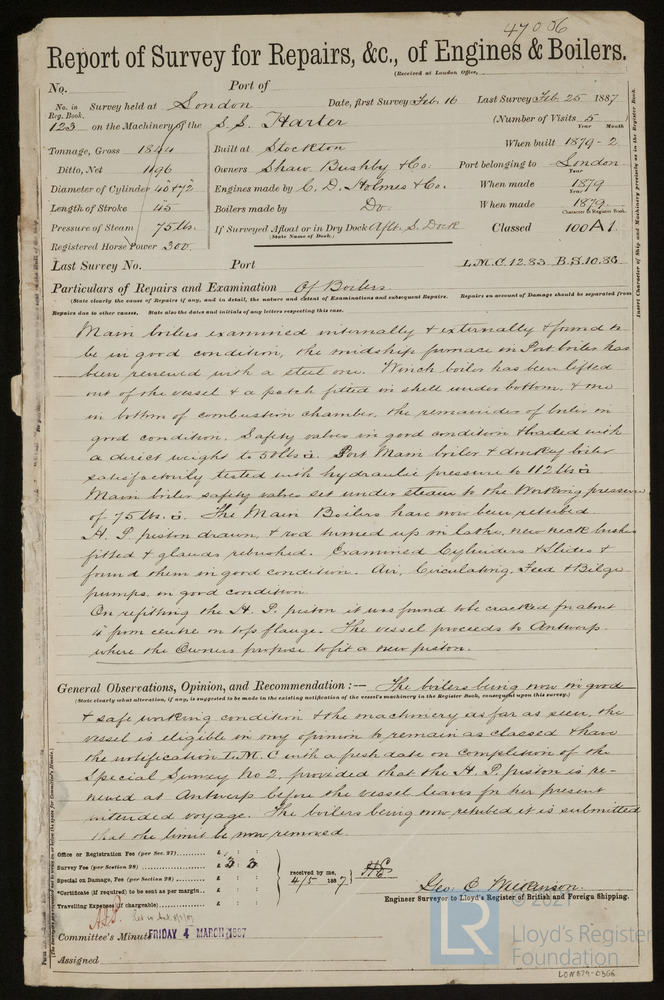 47006
Report of Survey for Repairs, &c., of Engines & Boilers.
(Received at London Office,
No. Port of
No. in Reg. Book. Survey held at London Date, first Survey Feb. 16 Last Survey Feb. 25 1887
123 on the Machinery of the S.S. Harter (Number of Visits 5)
Year Month
Tonnage, Gross 1844 Built at Stockton When built 1879 - 2
Ditto, Net 1196 Owners Shaw Bushby & Co. Port belonging to London
Diameter of Cylinder 40 & 72 Engines made by C. D. Holmes & Co. When made Year 1879
Length of Stroke 45 Boilers made by Do When made 1879
Pressure of Steam 75 lbs. If Surveyed Afloat or in Dry Dock Aflt. S. Dock Classed Character in Register Book. 100A1.
(State Name of Dock.)
Registered Horse Power 300
Last Survey No. Port L.M.C. 12.83. B.S. 10.86
Particulars of Repairs and Examination Of Boilers
(State clearly the cause of Repairs if any, and in detail, the nature and extent of Examinations and subsequent Repairs. Repairs on account of Damage should be separated from
Repairs due to other causes. State also the dates and initials of any letters respecting this case.
Main boilers examined internally & externally & found to
be in good condition, the midship furnace in Port boiler has
been renewed with a steel one. Winch boiler has been lifted
out of the vessel & a patch fitted in shell under bottom, & one
in bottom of combustion chamber, the remainder of boiler in
good condition. Safety valves in good condition & loaded with
a direct weight to 50 lbs. Port Main boiler & donkey boiler
satisfactorily tested with hydraulic pressure to 112 lbs
Main boiler safety valves set under steam to the Working pressure
of 75 lbs. The Main Boilers have now been retubed.
H. P. piston drawn, & rod turned up in lathe, new neck bushes
fitted & glands rebushed. Examined Cylinders & Slides &
found them in good condition. Air, Circulating, Feed & Bilge
pumps in good condition
On refitting the H. P. piston it was found to be cracked for about
4" from centre on top flange. The vessel proceeds to Antwerp
where the Owners propose to fit a new piston.
General Observations, Opinion, and Recommendation :— The boilers being now in good
(State clearly what alteration, if any, is suggested to be made in the existing notification of the vessel's machinery in the Register Book, consequent upon this survey.)
& safe working condition & the machinery as far as seen, the
vessel is eligible in my opinion to remain as classed & have
the notification L.M.C with a fresh date on completion of the
Special Survey No 2, provided that the H. P. piston is re-
newed at Antwerp before the vessel leaves for her present
intended voyage. The boilers being now retubed it is submitted
that the limit be now removed
Office or Registration Fee (per Sec. 27) £ : :
Survey Fee (per Section 28) £ 3 : 3 :
Special on Damage, Fee (per Section 28) £ : :
*Certificate (if required) to be sent as per margin £ : :
Travelling Expenses (if chargeable) £ : :
received by me,
4/5 1887
Geo. C. Wilkinson
Engineer Surveyor to Lloyd's Register of British and Foreign Shipping.
Committee's Minute FRIDAY 4 MARCH 1887
Assigned
© 2021
LR
Lloyd's Register
Foundation
LON879-0366
Insert Character of Ship and Machinery precisely as in the Register Book.